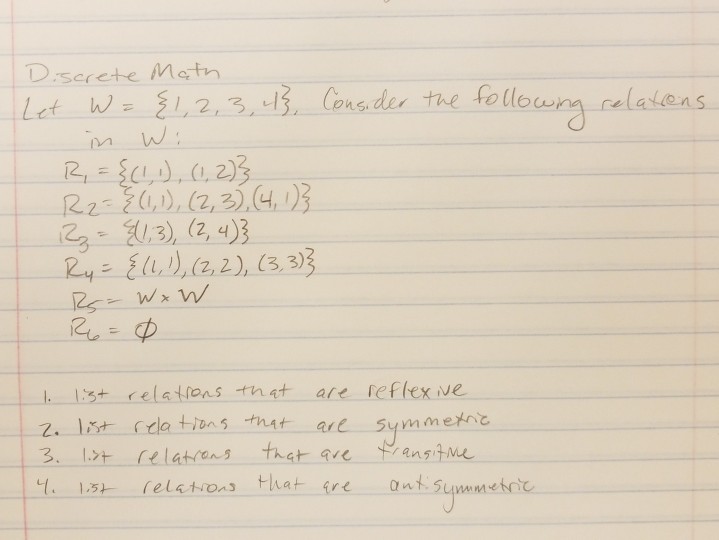 Discrete Math
Let W = {1, 2, 3, 4}. Consider the following relations
in W:
R₁ = {(1,1), (1,2)}
R₂ = {(1,1), (2,3), (4,1)}
R₃ = {(1,3), (2,4)}
R₄ = {(1,1), (2,2), (3,3)}
R₅ = W × W
R₆ = ∅
1. list relations that are reflexive
2. list relations that are symmetric
3. list relations that are transitive
4. list relations that are antisymmetric